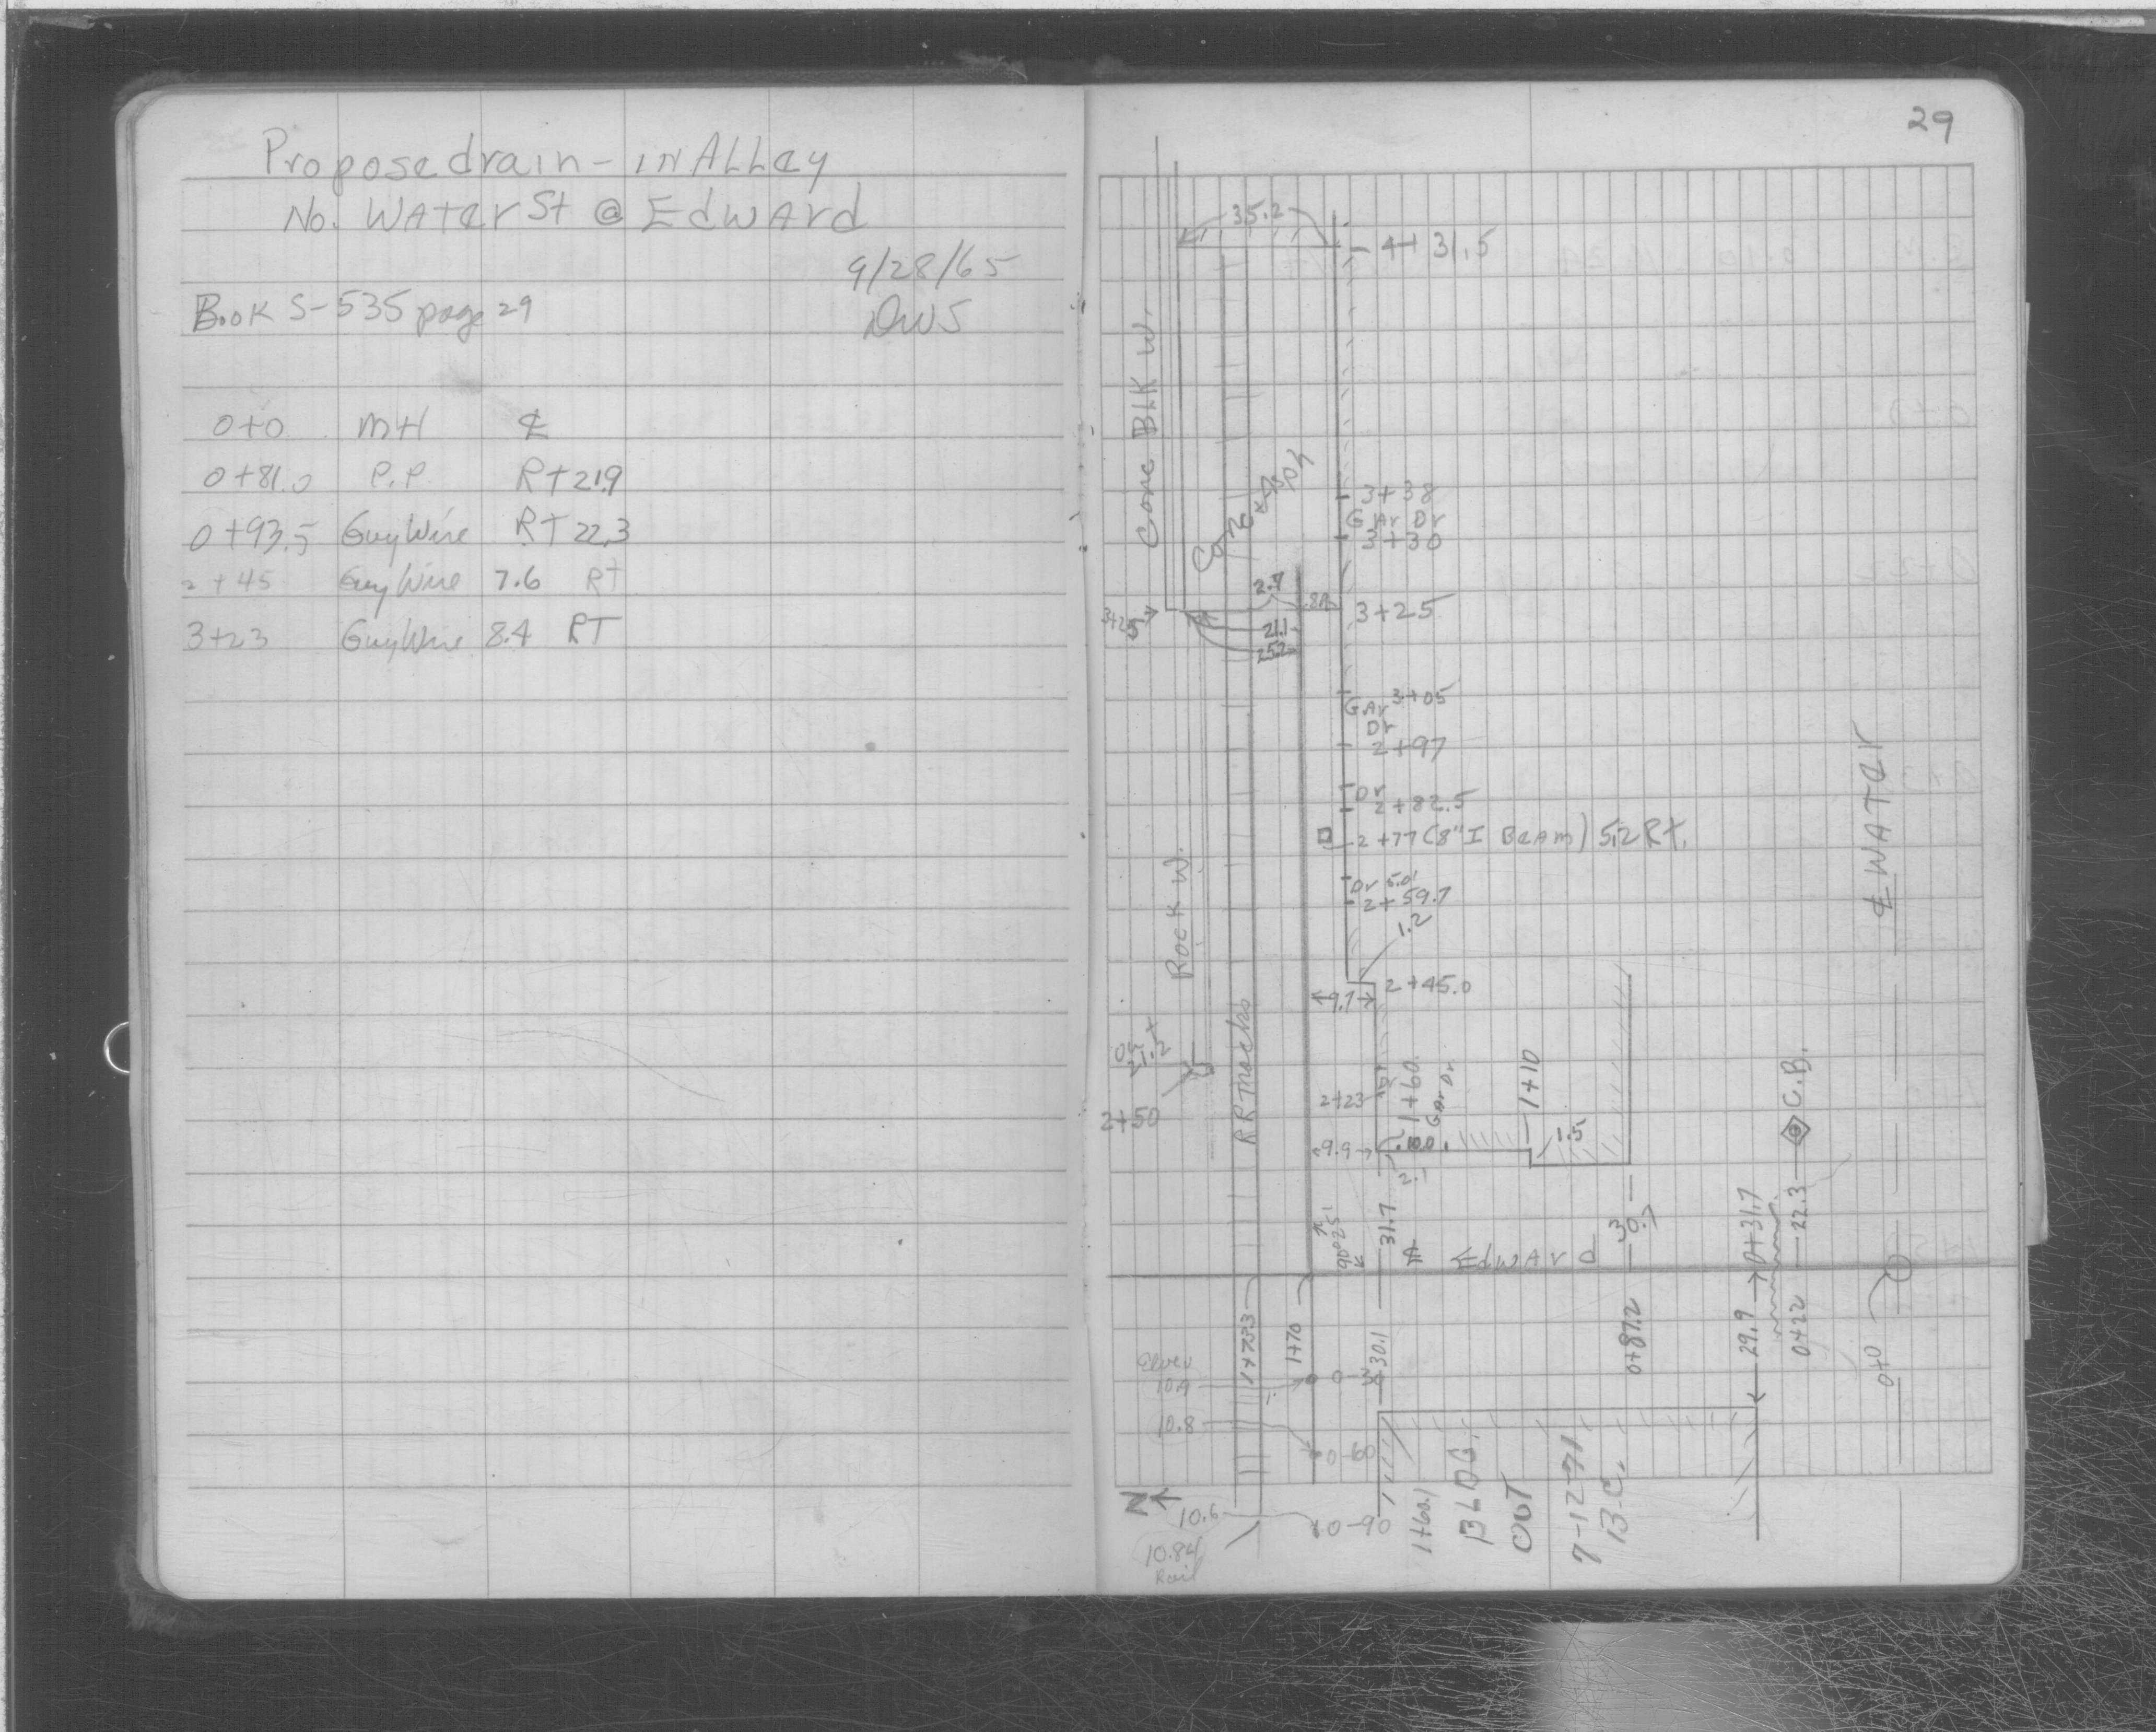 Propose drain - in Alley
No. Water St @ Edward
9/28/65
Book S-535 page 29
DWS
0+0 MH ℄
0+81.0 P.P Rt 21.9
0+93.5 Guy Wire Rt 22.3
2+45 Guy Wire 7.6 Rt
3+23 Guy Wire 8.4 RT
29
35.2
4+31.5
Conc BLK W.
3+38
GAr Dr
3+30
2.7
3+25
21.1
25.2
GAr 3+05
Dr
2+97
Dr
2+82.5
2+77 (8" I Beam) 5.2 Rt.
Dr 5.0'
2+59.7
1.2
℄ WATER
Rock W.
9.7
2+45.0
21.2
2+50
RR Tracks
2+23
1+60
GAr Dr
1+10
C.B.
9.9
10.0
1.5
2.1
90°25'
31.7
℄ Edward
30.
0+31.7
22.3
1+70
30.1
0+87.2
29.9
0+22
0+0
Elev
10.9
0-30
10.8
0-60
N
10.6
0-90
10.84
Rail
1+60.1
BLDG.
OUT
7-12-71
B.C.